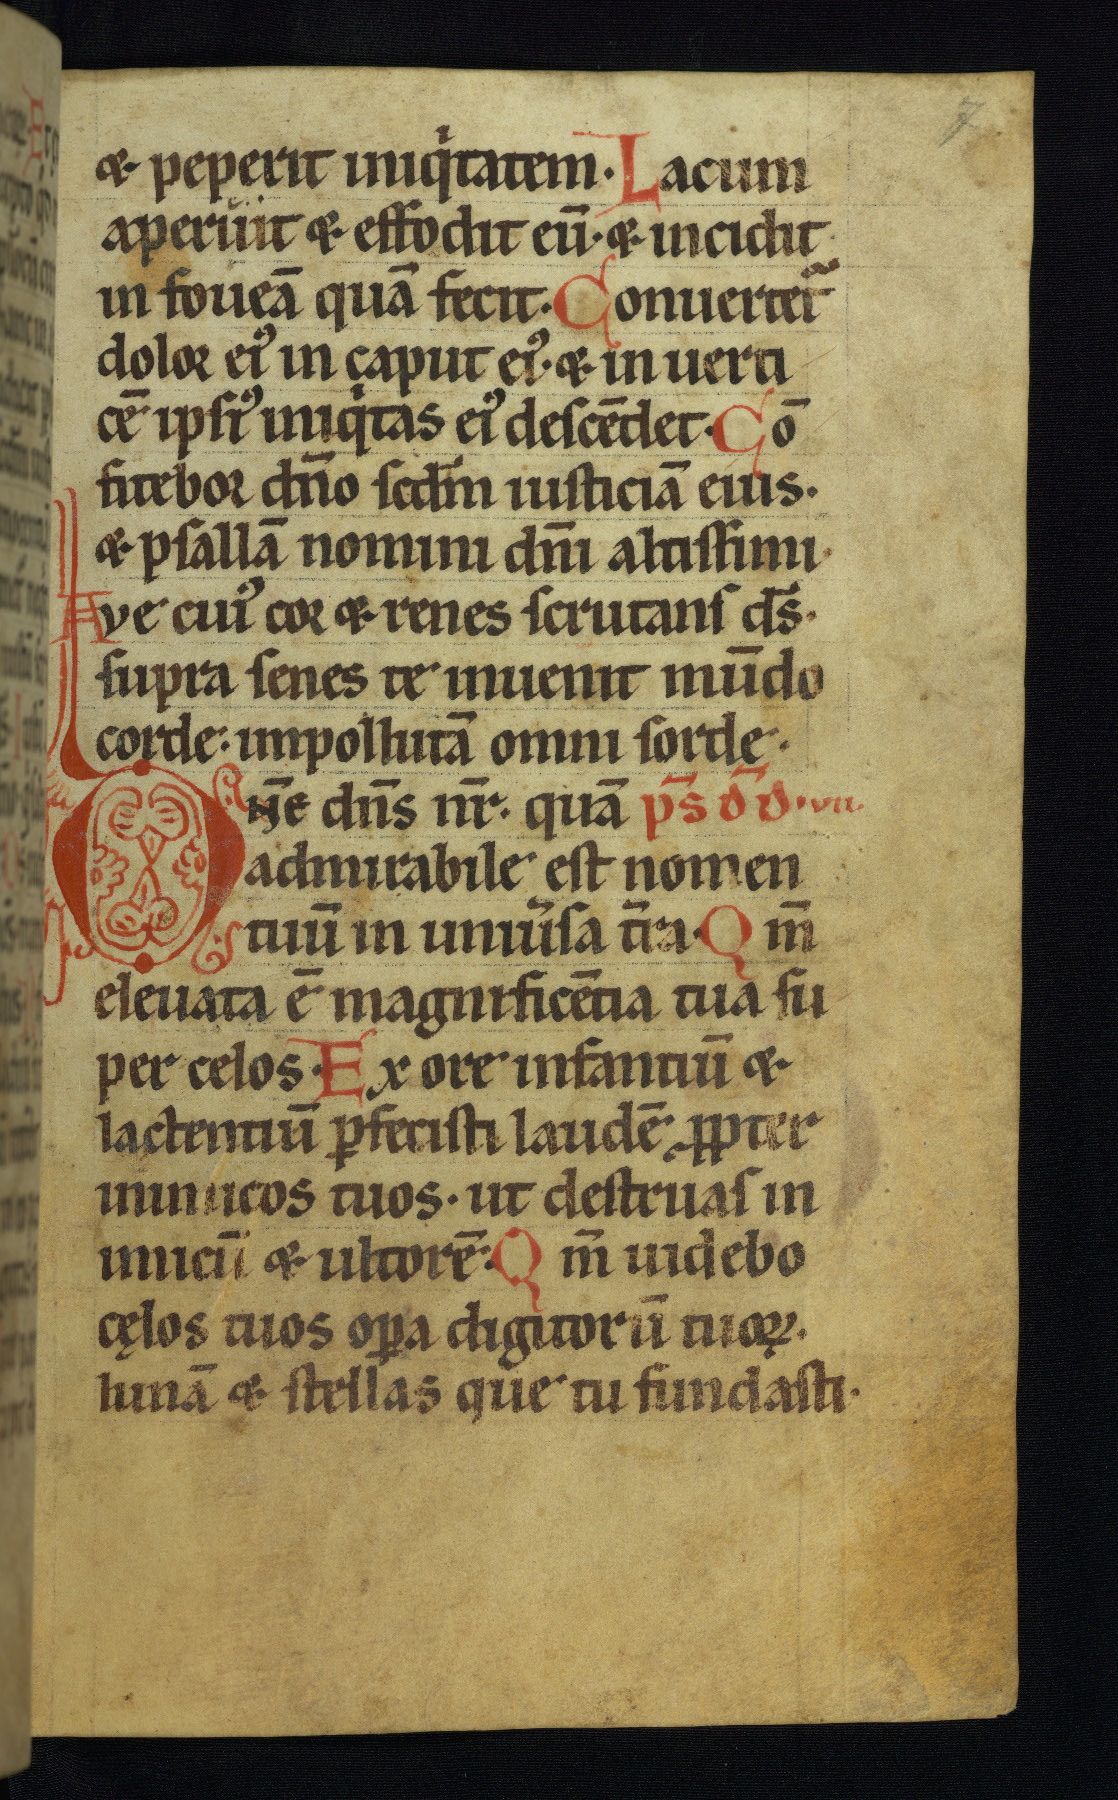 7
& peperit iniq̇tatem· Lacum
aperuit & effodit eū· & incidit
in foueā quā fecit· Conuertet᷑
dolor eiꝰ in caput eiꝰ· & in uerti
cē ipsiꝰ iniq̇tas eiꝰ descēdet· Cō
fitebor dn̄o scdm̄ iusticiā eius·
& psallā nomini dn̄i altissimi·
Ave cuiꝰ cor & renes scrutans ds̄·
supra senes te inuenit mūdo
corde: impollutā omni sorde·
Dn̄e dn̄s nr̄· quā ps̄ dd̄· vii·
admirabile est nomen
tuū in uniūsa t̄ra· Qm̄
eleuata ē magnificētia tua su
per celos· Ex ore infantiū &
lactentiū ꝑfecisti laudē ꝓpter
inimicos tuos· ut destruas in
imicū & ultorē· Qm̄ uidebo
cęlos tuos oꝑa digitorū tuoꝝ·
lunā & stellas que tu fundasti·